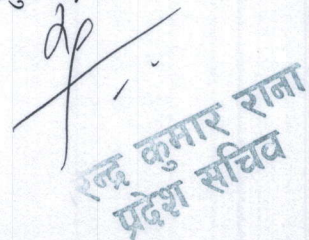 कुमार राना
प्रदेश सचिव